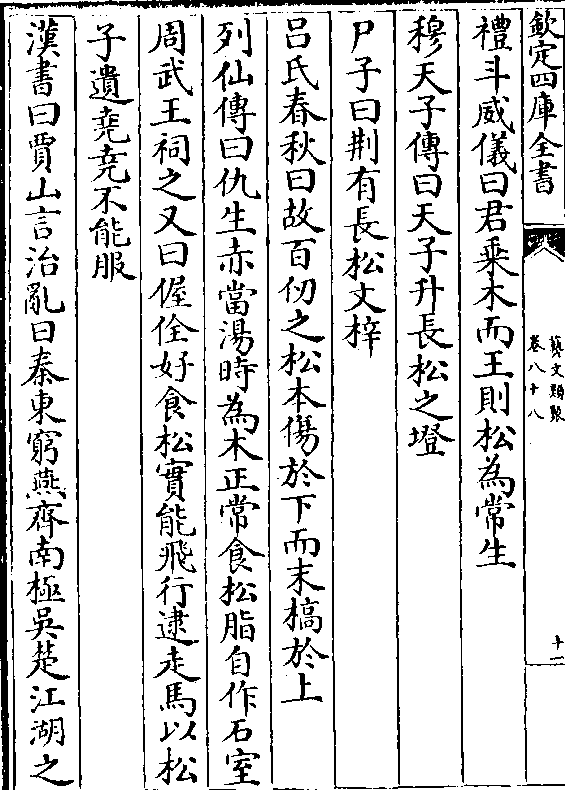 欽定四庫全書
藝文類聚
卷八十八
十一
禮斗威儀曰君乗木而王則松為常生
穆天子傳曰天子升長松之墱
尸子曰荆有長松文梓
吕氏春秋曰故百仞之松本傷於下而末槁於上
列仙傳曰仇生赤當湯時為木正常食松脂自作石室
周武王祠之又曰偓佺好食松實能飛行逮走馬以松
子遺堯堯不能服
漢書曰賈山言治亂曰秦東窮燕齊南極吳楚江湖之